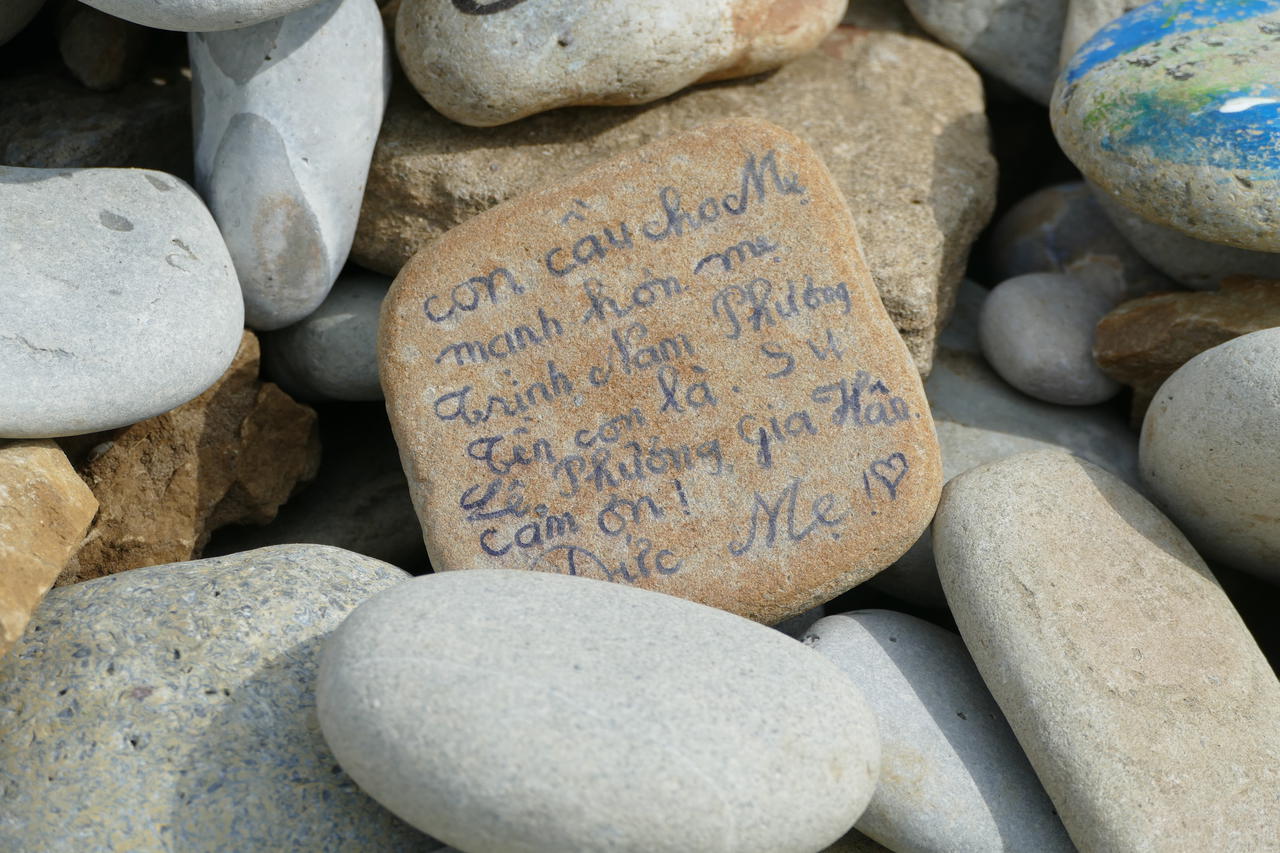 con cầu cho Mẹ
mạnh hơn mẹ
Trinh Nam Phương
Tên con là. Sử
Lê Phương Gia Hân.
cảm ơn!
Đức Mẹ !♡